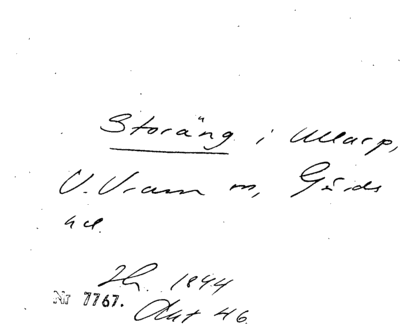 Storäng i Ullarp,
V. Vram sn, Gärds
hd.
1844
Nr 7767.
Akt 46